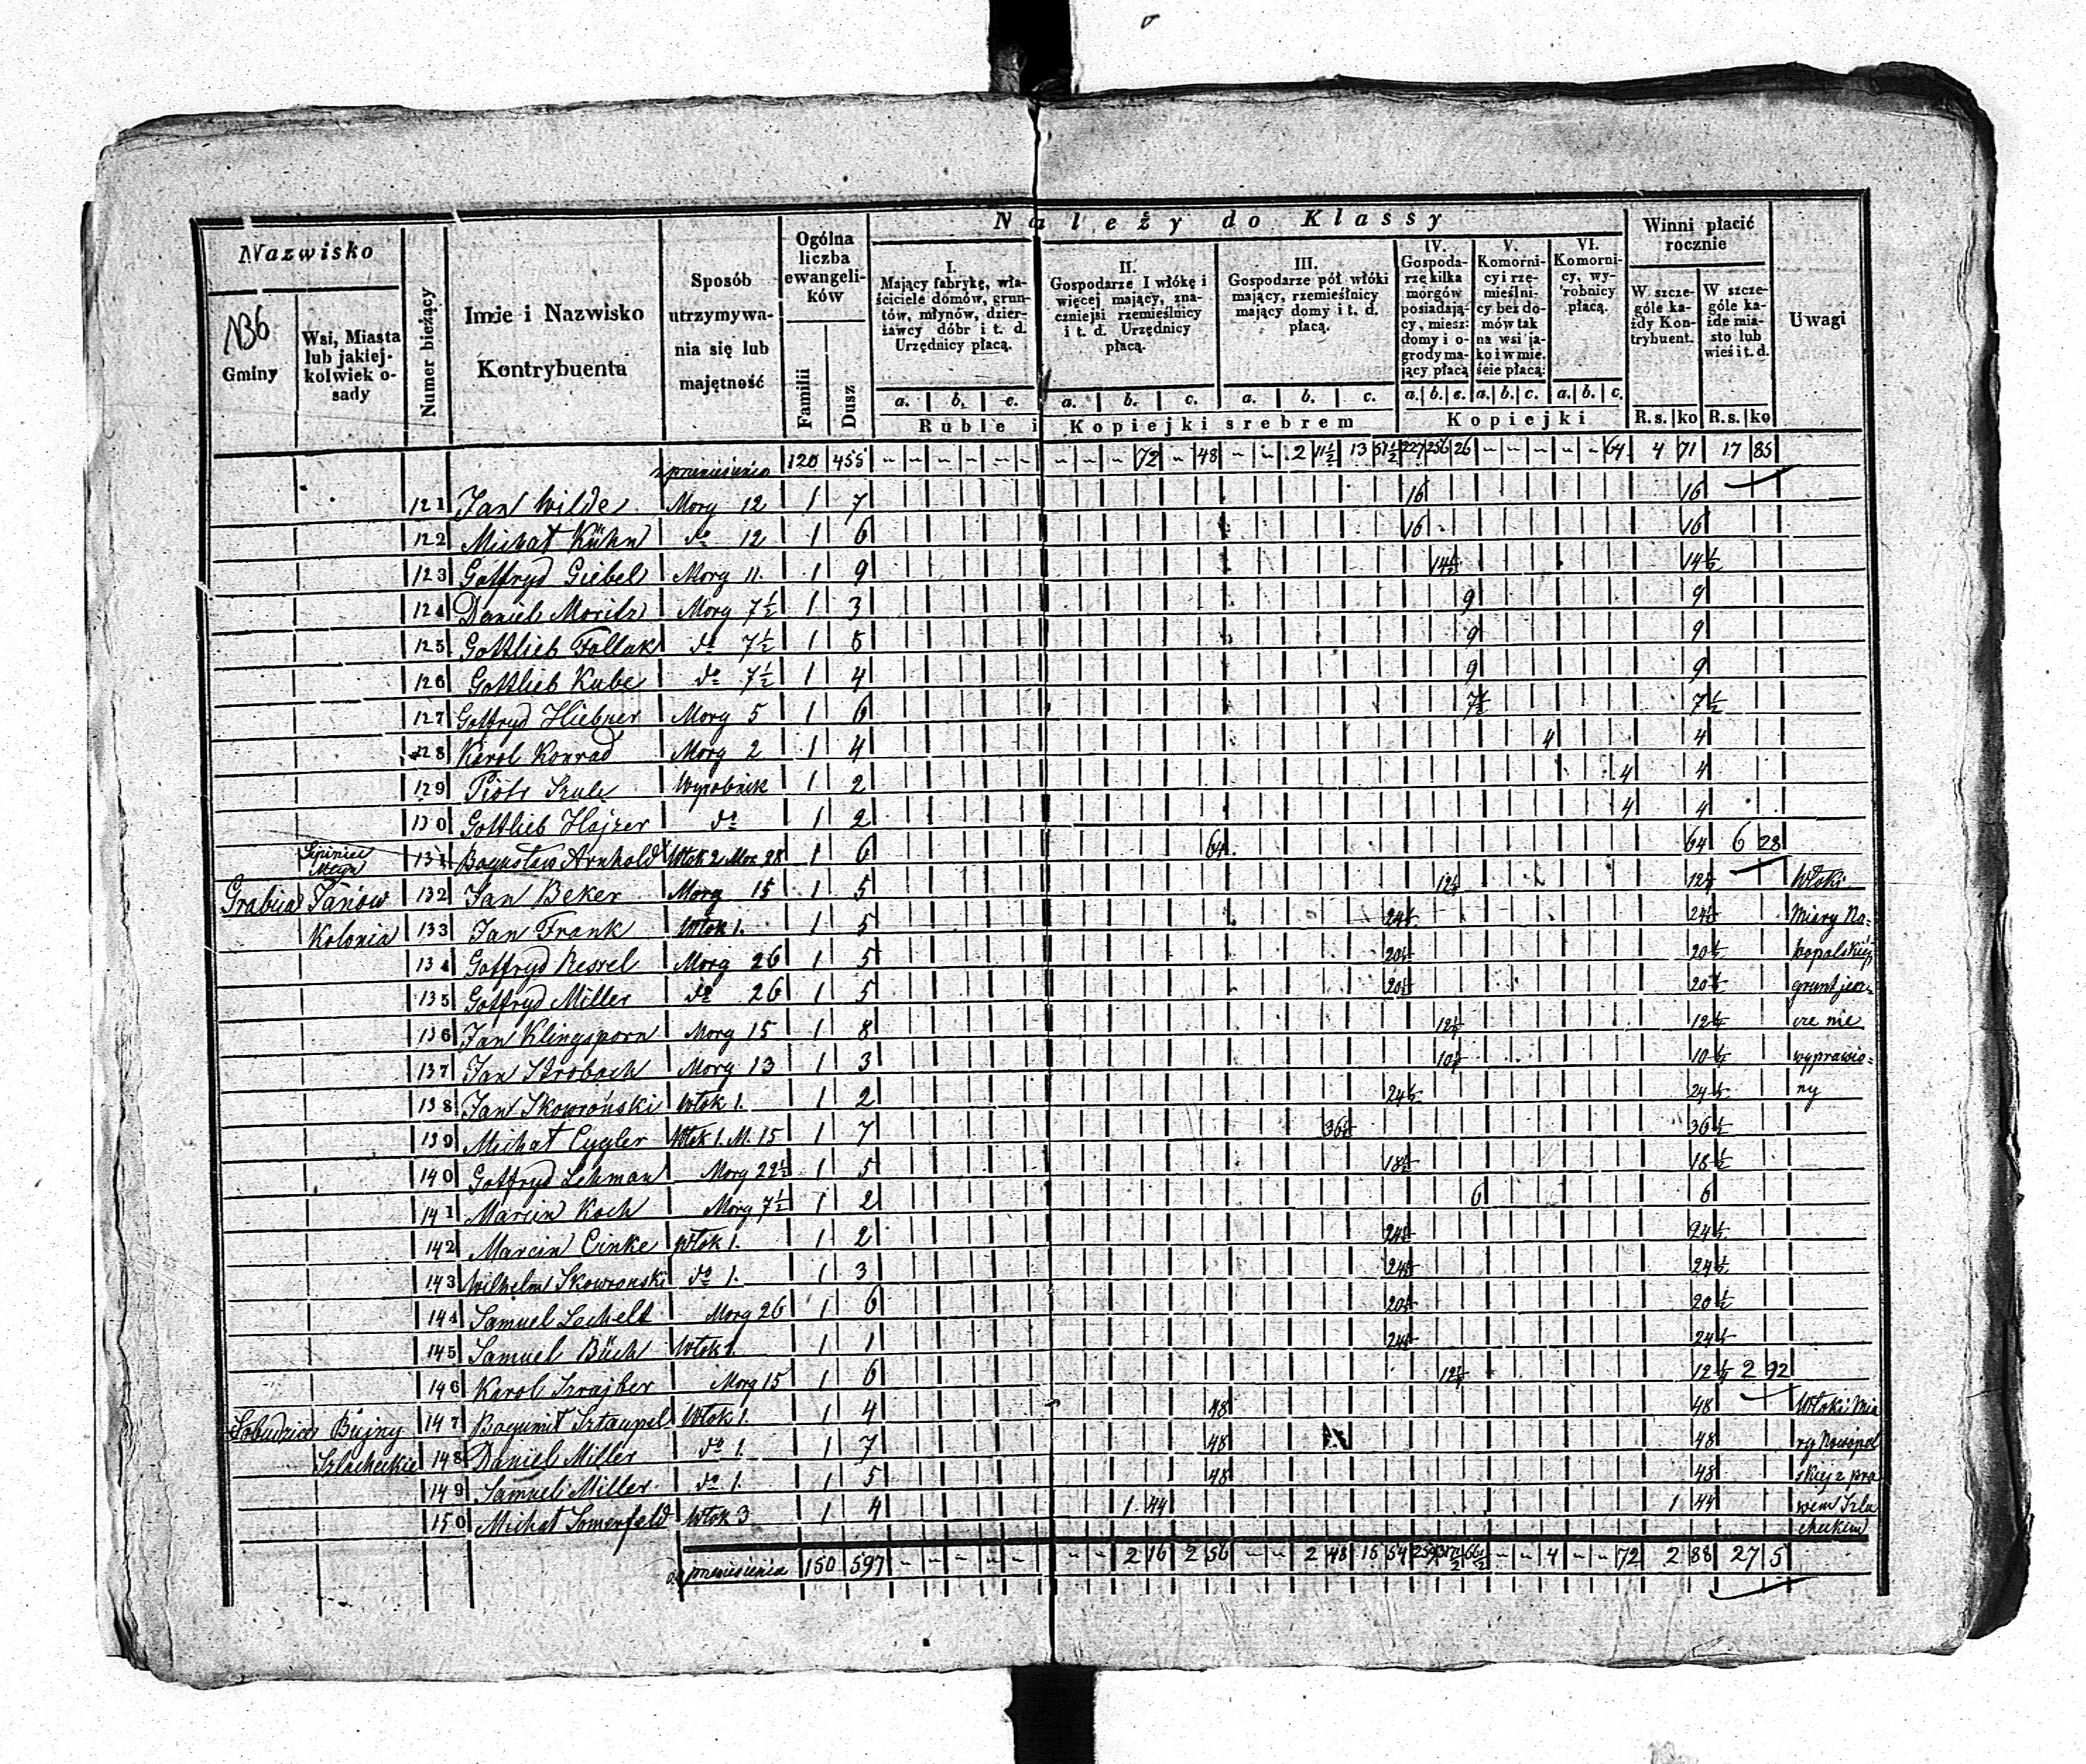 Należy do Klassy
Nazwisko
136
Gminy
Wsi, Miasta
lub jakiej-
kolwiek o-
sady
Numer bieżący
Imie i Nazwisko
Kontrybuenta
Sposób
utrzymywa-
nia się lub
majętność
Ogólna
liczba
ewangeli-
ków
Familii
Dusz
I.
Mający fabrykę, wła-
ściciele domów, grun-
tów, młynów, dzier-
żawcy dóbr i t. d.
Urzędnicy płacą.
II.
Gospodarze I włókę i
więcej mający, zna-
czniejsi rzemieślnicy
i t. d. Urzędnicy
płacą.
III.
Gospodarze pół włóki
mający, rzemieślnicy
mający domy i t. d.
płacą.
IV.
Gospoda-
rze kilka
morgów
posiadają-
cy, miesz:
domy i o-
grody ma-
jący płacą
V.
Komorni-
cy i rzę-
mieślni-
cy bez do-
mów tak
na wsi ja-
ko i w mie.
ście płacą:
VI.
Komorni-
cy, wy-
robnicy
płacą.
Winni płacić
rocznie
W szcze-
góle ka-
żdy Kon-
trybuent.
W szcze-
góle ka-
żde mia-
sto lub
wieś i t. d.
Uwagi
a. b. c. a. b. c. a. b. c. a. b. c. a. b. c. a. b. c.
Ruble i Kopiejki srebrem Kopiejki R.s. ko R.s. ko
z przeniesienia 120 455 72 48 2 11½ 13 51½ 227 256 26 64 4 71 17 85
121 Jan Wilde Morg 12 1 7 16 16
122 Michał Kühn do 12 1 6 16 16
123 Gottfryd Giebel Morg 11. 1 9 14½ 14½
124 Daniel Moritz Morg 7½ 1 3 9 9
125 Gottlieb Follak do 7½ 1 5 9 9
126 Gottlieb Kube do 7½ 1 4 9 9
127 Gottfryd Hiebner Morg 5 1 6 7½ 7½
128 Karol Konrad Morg 2 1 4 4 4
129 Piotr Szulc Wyrobnik 1 2 4 4
130 Gottlieb Hajzer do 1 2 4 4
131 Bogusław Arnhold Włok 2 Mor. 28 1 6 64 64 6 28
Grabica Tanów 132 Jan Beker Morg 15 1 5 12½ 12½ Włoki
Kolonia 133 Jan Frank Włok 1. 1 5 24½ 24½ Miary No-
134 Gottfryd Kessel Morg 26 1 5 20½ 20½ wopolskiej
135 Gottfryd Miller do 26 1 5 20½ 20½ grunt jesz-
136 Jan Klingsporn Morg 15 1 8 12½ 12½ cze nie
137 Jan Strobach Morg 13 1 3 10½ 10½ wyprawio-
138 Jan Skowroński Włok 1. 1 2 24½ 24½ ny
139 Michał Cygler Włok 1. M. 15 1 7 36½ 36½
140 Gottfryd Lehman Morg 22½ 1 5 18½ 18½
141 Marcin Koch Morg 7½ 1 2 6 6
142 Marcin Cinke Włok 1. 1 2 24½ 24½
143 Wilhelm Skowronski do 1. 1 3 24½ 24½
144 Samuel Lechelt Morg 26 1 6 20½ 20½
145 Samuel Büch Włok 1. 1 1 24½ 24½
146 Karol Szrajber Morg 15 1 6 12½ 12½ 2 92
Łobudzice Bujny 147 Bogumił Sztaupel Włok 1. 1 4 48 48 Włoki Mia
Szlacheckie 148 Daniel Miller do 1. 1 7 48 48 ry Nowopol
149 Samuel Miller do 1. 1 5 48 48 skiej z pra
150 Michał Somerfeld Włok 3 1 4 1 44 1 44 wem Szla
checkim
do przeniesienia 150 597 2 16 2 56 2 48 15 54 259 66½ 4 72 2 88 27 5